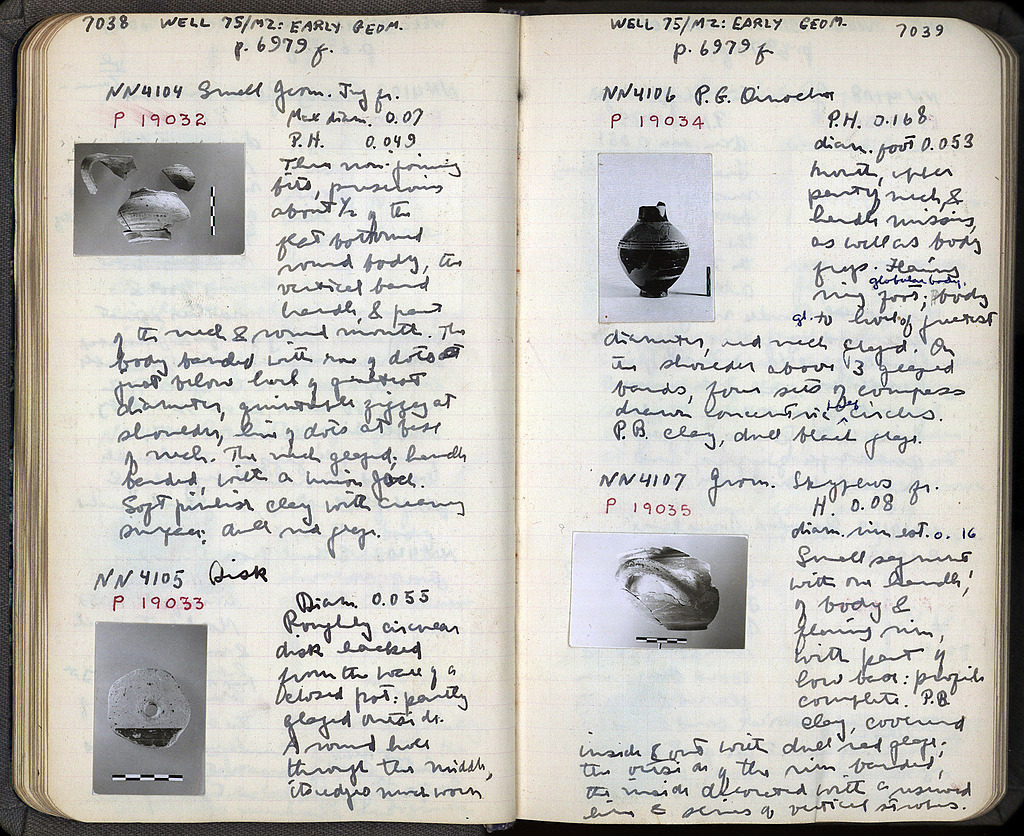 7038 WELL 75/M2: EARLY GEOM.
p. 6979 f.
NN4104 Small Geom. Jug fr.
P 19032
Max diam. 0.07
P.H. 0.049
Three non-joining
frs, preserving
about 1/2 of the
flat bottomed
round body, the
vertical band
handle, & part
of the neck & round mouth. The
body banded with row of dots
just below level of greatest
diameter, quintuple zigzag at
shoulder, line of dots at base
of neck. The neck glazed; handle
banded, with a union jack.
Soft pinkish clay with creamy
surface; dull red glaze.
NN 4105 Disk
P 19033
Diam. 0.055
Roughly circular
disk hacked
from the wall of a
closed pot: partly
glazed outside.
A round hole
through the middle,
its edges much worn
WELL 75/M2: EARLY GEOM. 7039
p. 6979 f
NN4106 P.G. Oinochoe
P 19034
P.H. 0.168
diam. foot 0.053
Mouth, upper
part of neck, &
handle missing,
as well as body
frags. Flaring
ring foot; globular body,
gl. to level of greatest
diameter, and neck glazed. On
the shoulder above 3 glazed
bands, four sets of compass
drawn concentric circles.
P.B. clay, dull black glaze.
NN 4107 Geom. Skyphos fr.
P 19035
H. 0.08
diam. rim est. 0.16
Small segment
with one handle,
of body &
flaring rim,
with part of
low base: profile
complete. P.B.
clay, covered
inside & out with dull red glaze;
the outside of the rim banded,
the inside decorated with a reserved
line & series of vertical strokes.